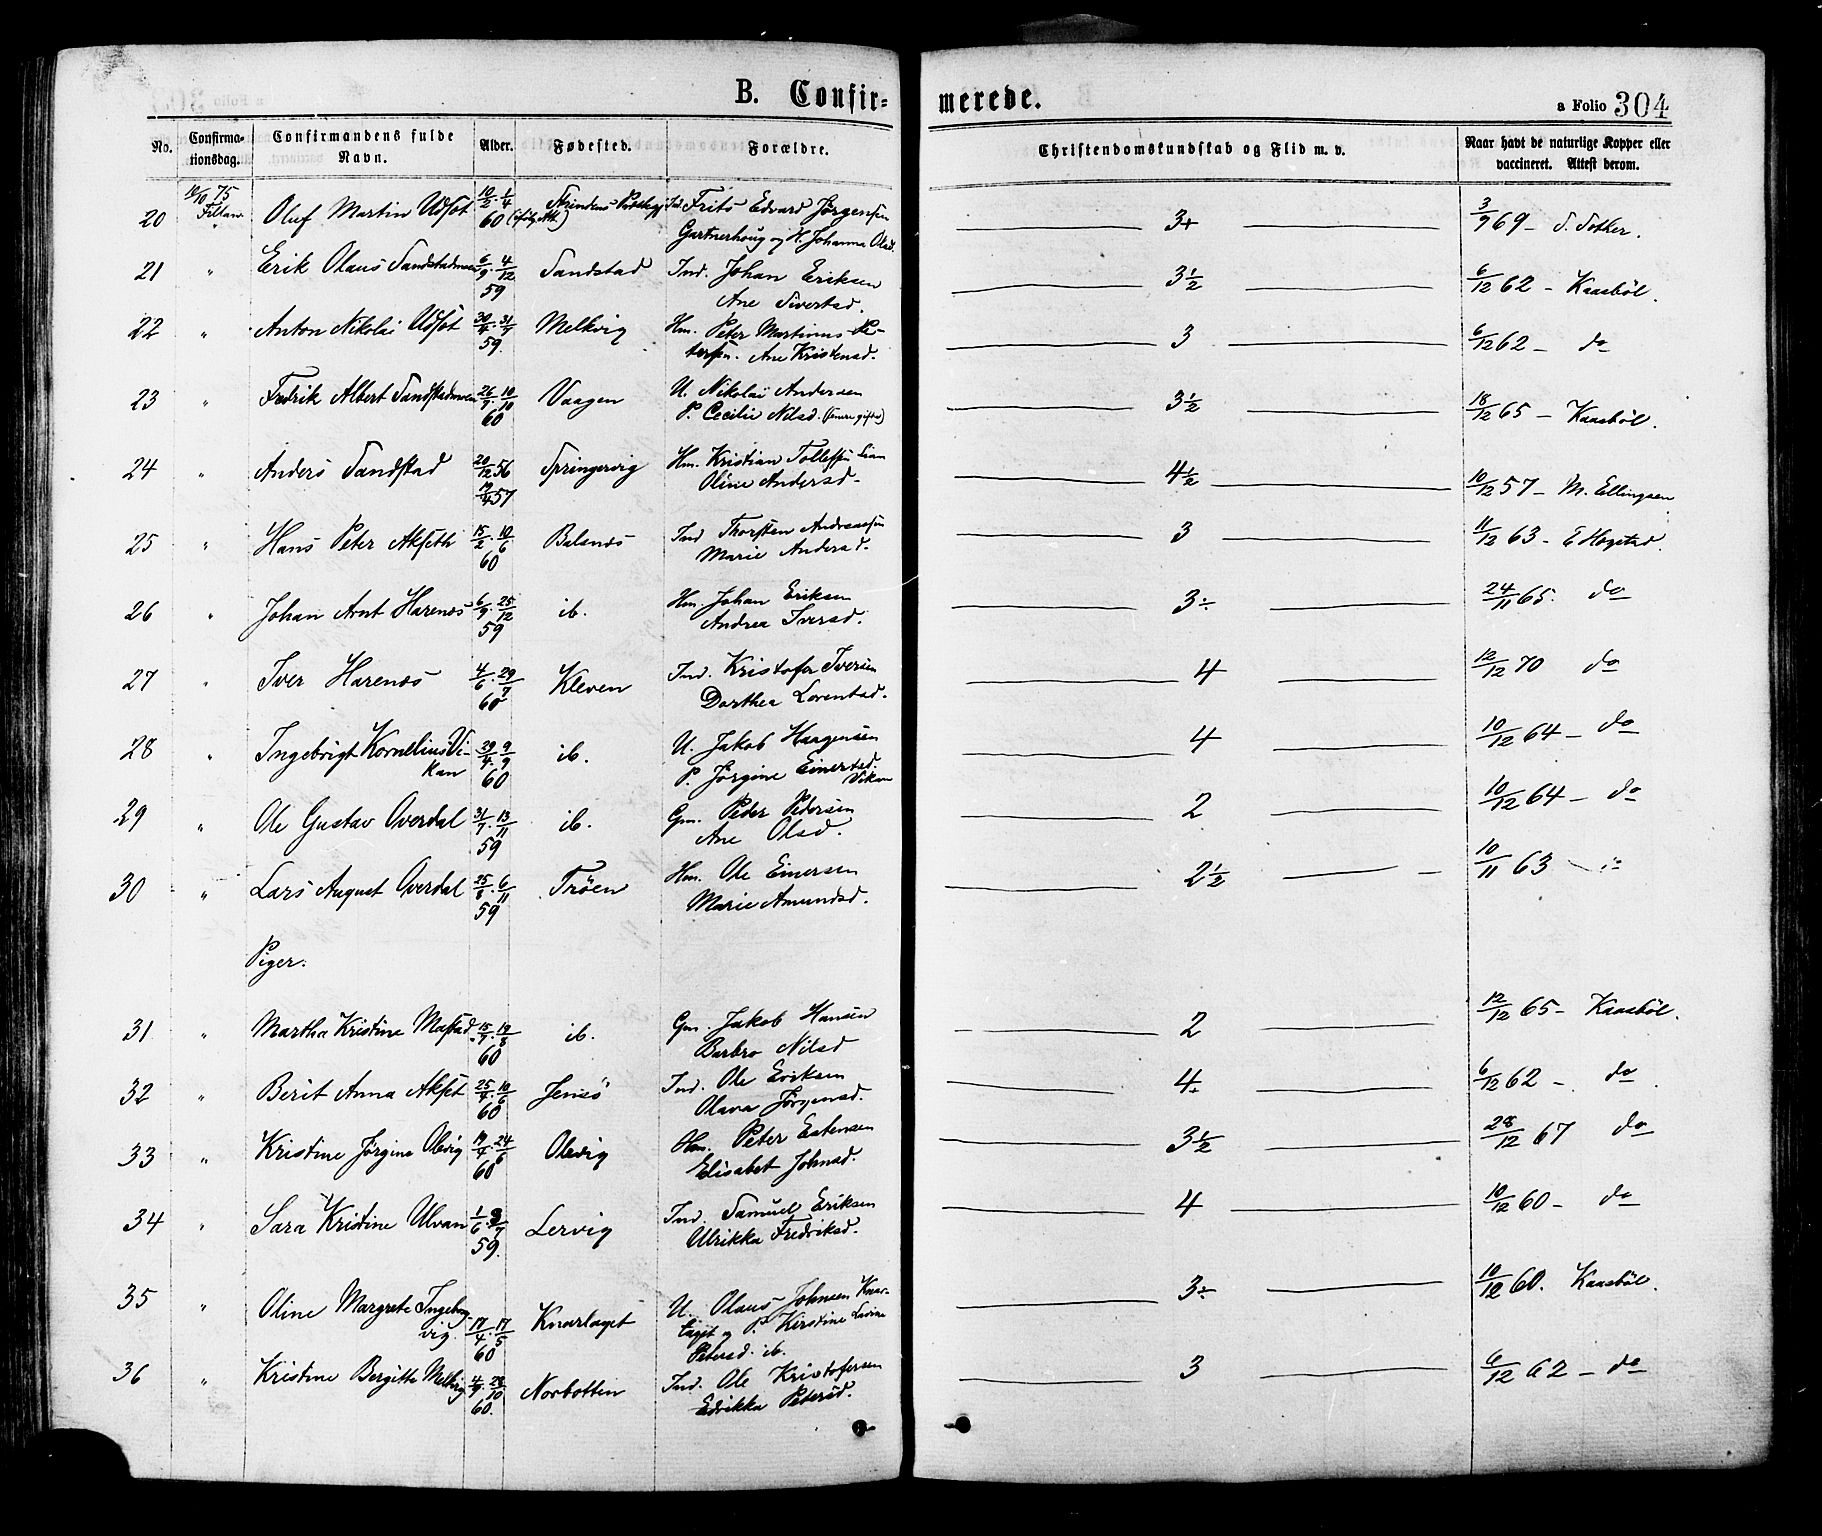 B. Confir=
merede.
a Folio 304
No.
Confirma-
tionsdag.
Confirmandens fulde
Navn.
Alder.
Fødested.
Forældre.
Christendomskundskab og Flid m. v.
Naar havt de naturlige Kopper eller
vaccineret. Attest derom.
10/10 75
Fillan
20 " Oluf Martin Udsøt 10/2 1/4 60 Ind. Frits Edvard Jørgensen
Gartnerhoug og H. Johanna Olsd. 3+ 3/9 69 -
21 " Erik Olaus Sandstadmoen 6/9 4/12 59 Sandstad Ind. Johan Eriksen
Ane Sivertsd. 3 1/2 6/12 62 - Kaasbøl.
22 " Anton Nikolai Udsøt 30/4 31/7 59. Melkvig Hm. Peter Martinus Pe-
tersen. Ane Kristensd. 3 6/12 62 - do
23 " Fredrik Albert Sandstadmoen 26/7 10/10 60 Vaagen U. Nikolai Andersen
P. Cecilie Nilsd. 3 1/2 18/12 65 - Kaasbøl.
24 " Anders Sandstad 20/12 56 19/4 57 Springervig Hm. Kristian Tollefsen Lian
Oline Andersd. 4 1/2 10/12 57 - M. Ellingsen
25 " Hans Peter Aksetth 15/2 10/6 60 Balsnes Ind Thorsten Andreassen
Marie Andersd. 3 11/12 63 - E Hogstad.
26 " Johan Arnt Harenes 6/9 25/12 59 ib. Hm. Johan Eriksen
Andrea Iversd. 3÷ 24/11 65. do
27 " Iver Harenes 4/6 29/7 60 Kleven Ind. Kristofer Iversen
Dorthea Lorentsd. 4 12/12 70 do
28 " Ingebrigt Kornelius Vi-
kan 29/4 9/9 60 ib. U. Jakob Haagensen
P. Jørgine Einersd. Vikan 4 10/12 64 - do
29 " Ole Gustav Overdal 31/7 13/11 59 ib. Gm. Peder Pedersen
Ane Olsd. 2 10/12 64 - do
30 " Lars August Overdal 25/8 6/11 59 Trøen Hm. Ole Einersen
Marie Amundsd. 2 1/2 10/11 63
Piger.
31 " Martha Kristine Mastad 15/7 19/8 60 ib. Gm. Jakob Hansen
Barbro Nilsd 2 12/12 65 - Kaasbøl.
32 " Berit Anna Akset 25/4 10/6 60 Jensø Ind. Ole Eriksen
Olava Jørgensd. 4÷ 6/12 62 - do
33 " Kristine Jørgine Olevig 19/4 24/6 60 Olevig Hm. Peter Estensen
Elisabet Johnsd. 3 1/2 28/12 67 do
34 " Sara Kristine Ulvan 1/6 3/7 59. Lervig Ind. Samuel Eriksen
Ulrikka Fredriksd. 4 10/12 60 - do
35 " Oline Margrete Ingeborg-
vig. 17/4 17/5 60 Knarlaget U. Olaus Johnsen Knar-
laget og P. Kirstine Lavine
Petersd. ib. 3÷ 10/12 60. Kaasbøl.
36 " Kristine Bergitte Melkvig 4/9 28/10 60. Norbotten Ind. Ole Kristofersen
Edrikka Petersd. 3 6/12 62 - do